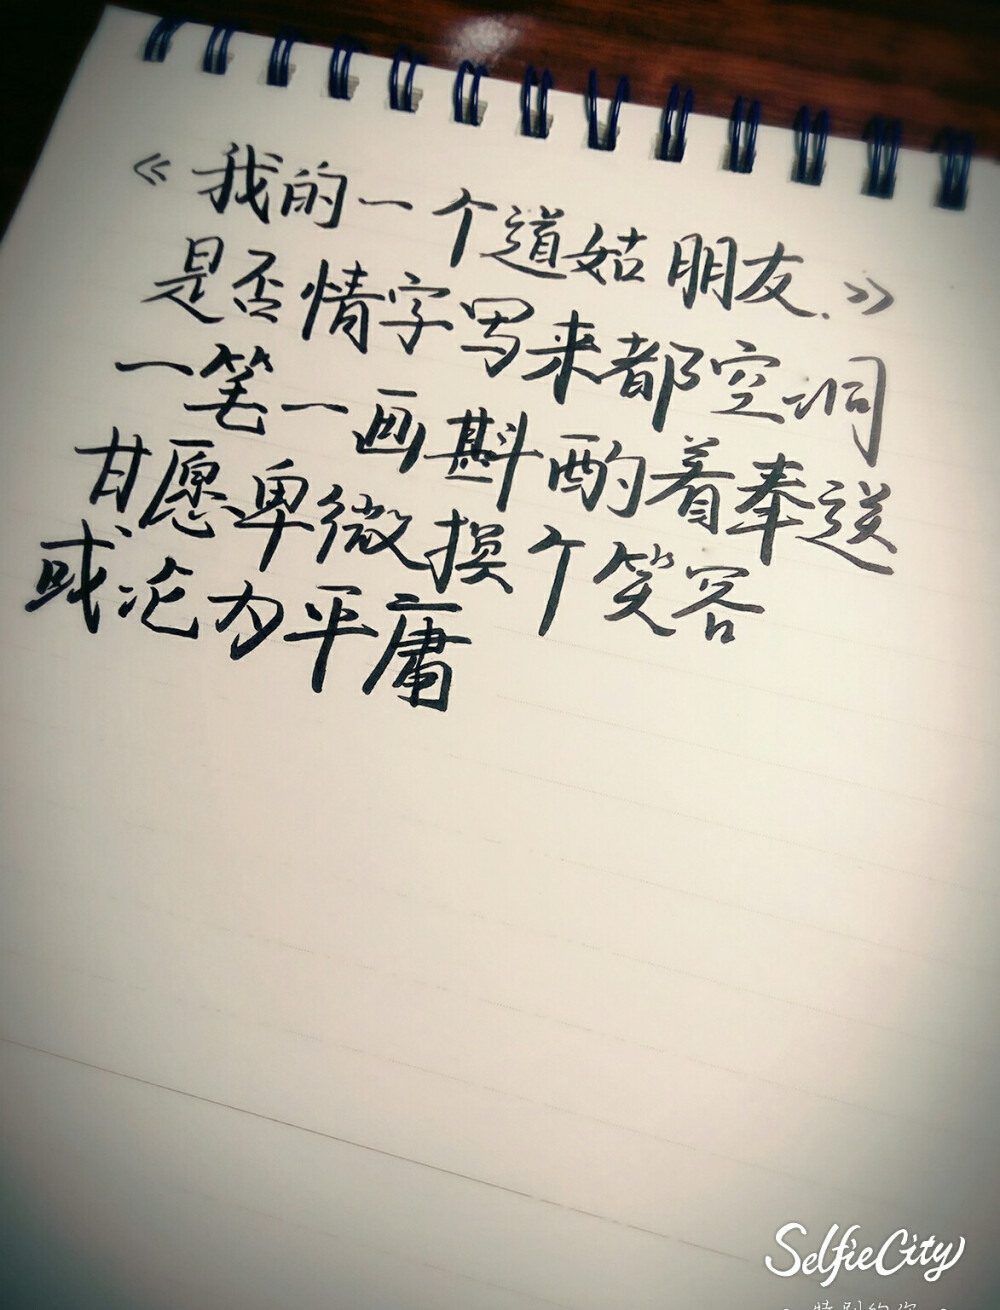 《我的一个道姑朋友》
是否情字写来都空洞
一笔一画斟酌着奉送
甘愿卑微换个笑容
或沦为平庸
SelfieCity